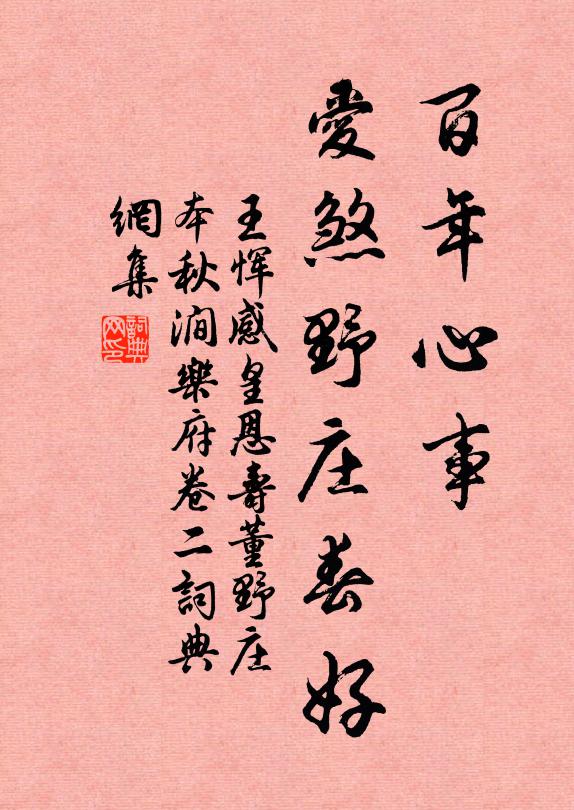 百年心事
愛煞野庄春好
王恽感皇恩壽董野庄
本秋澗樂府卷二詞典
網集
詞典
网印